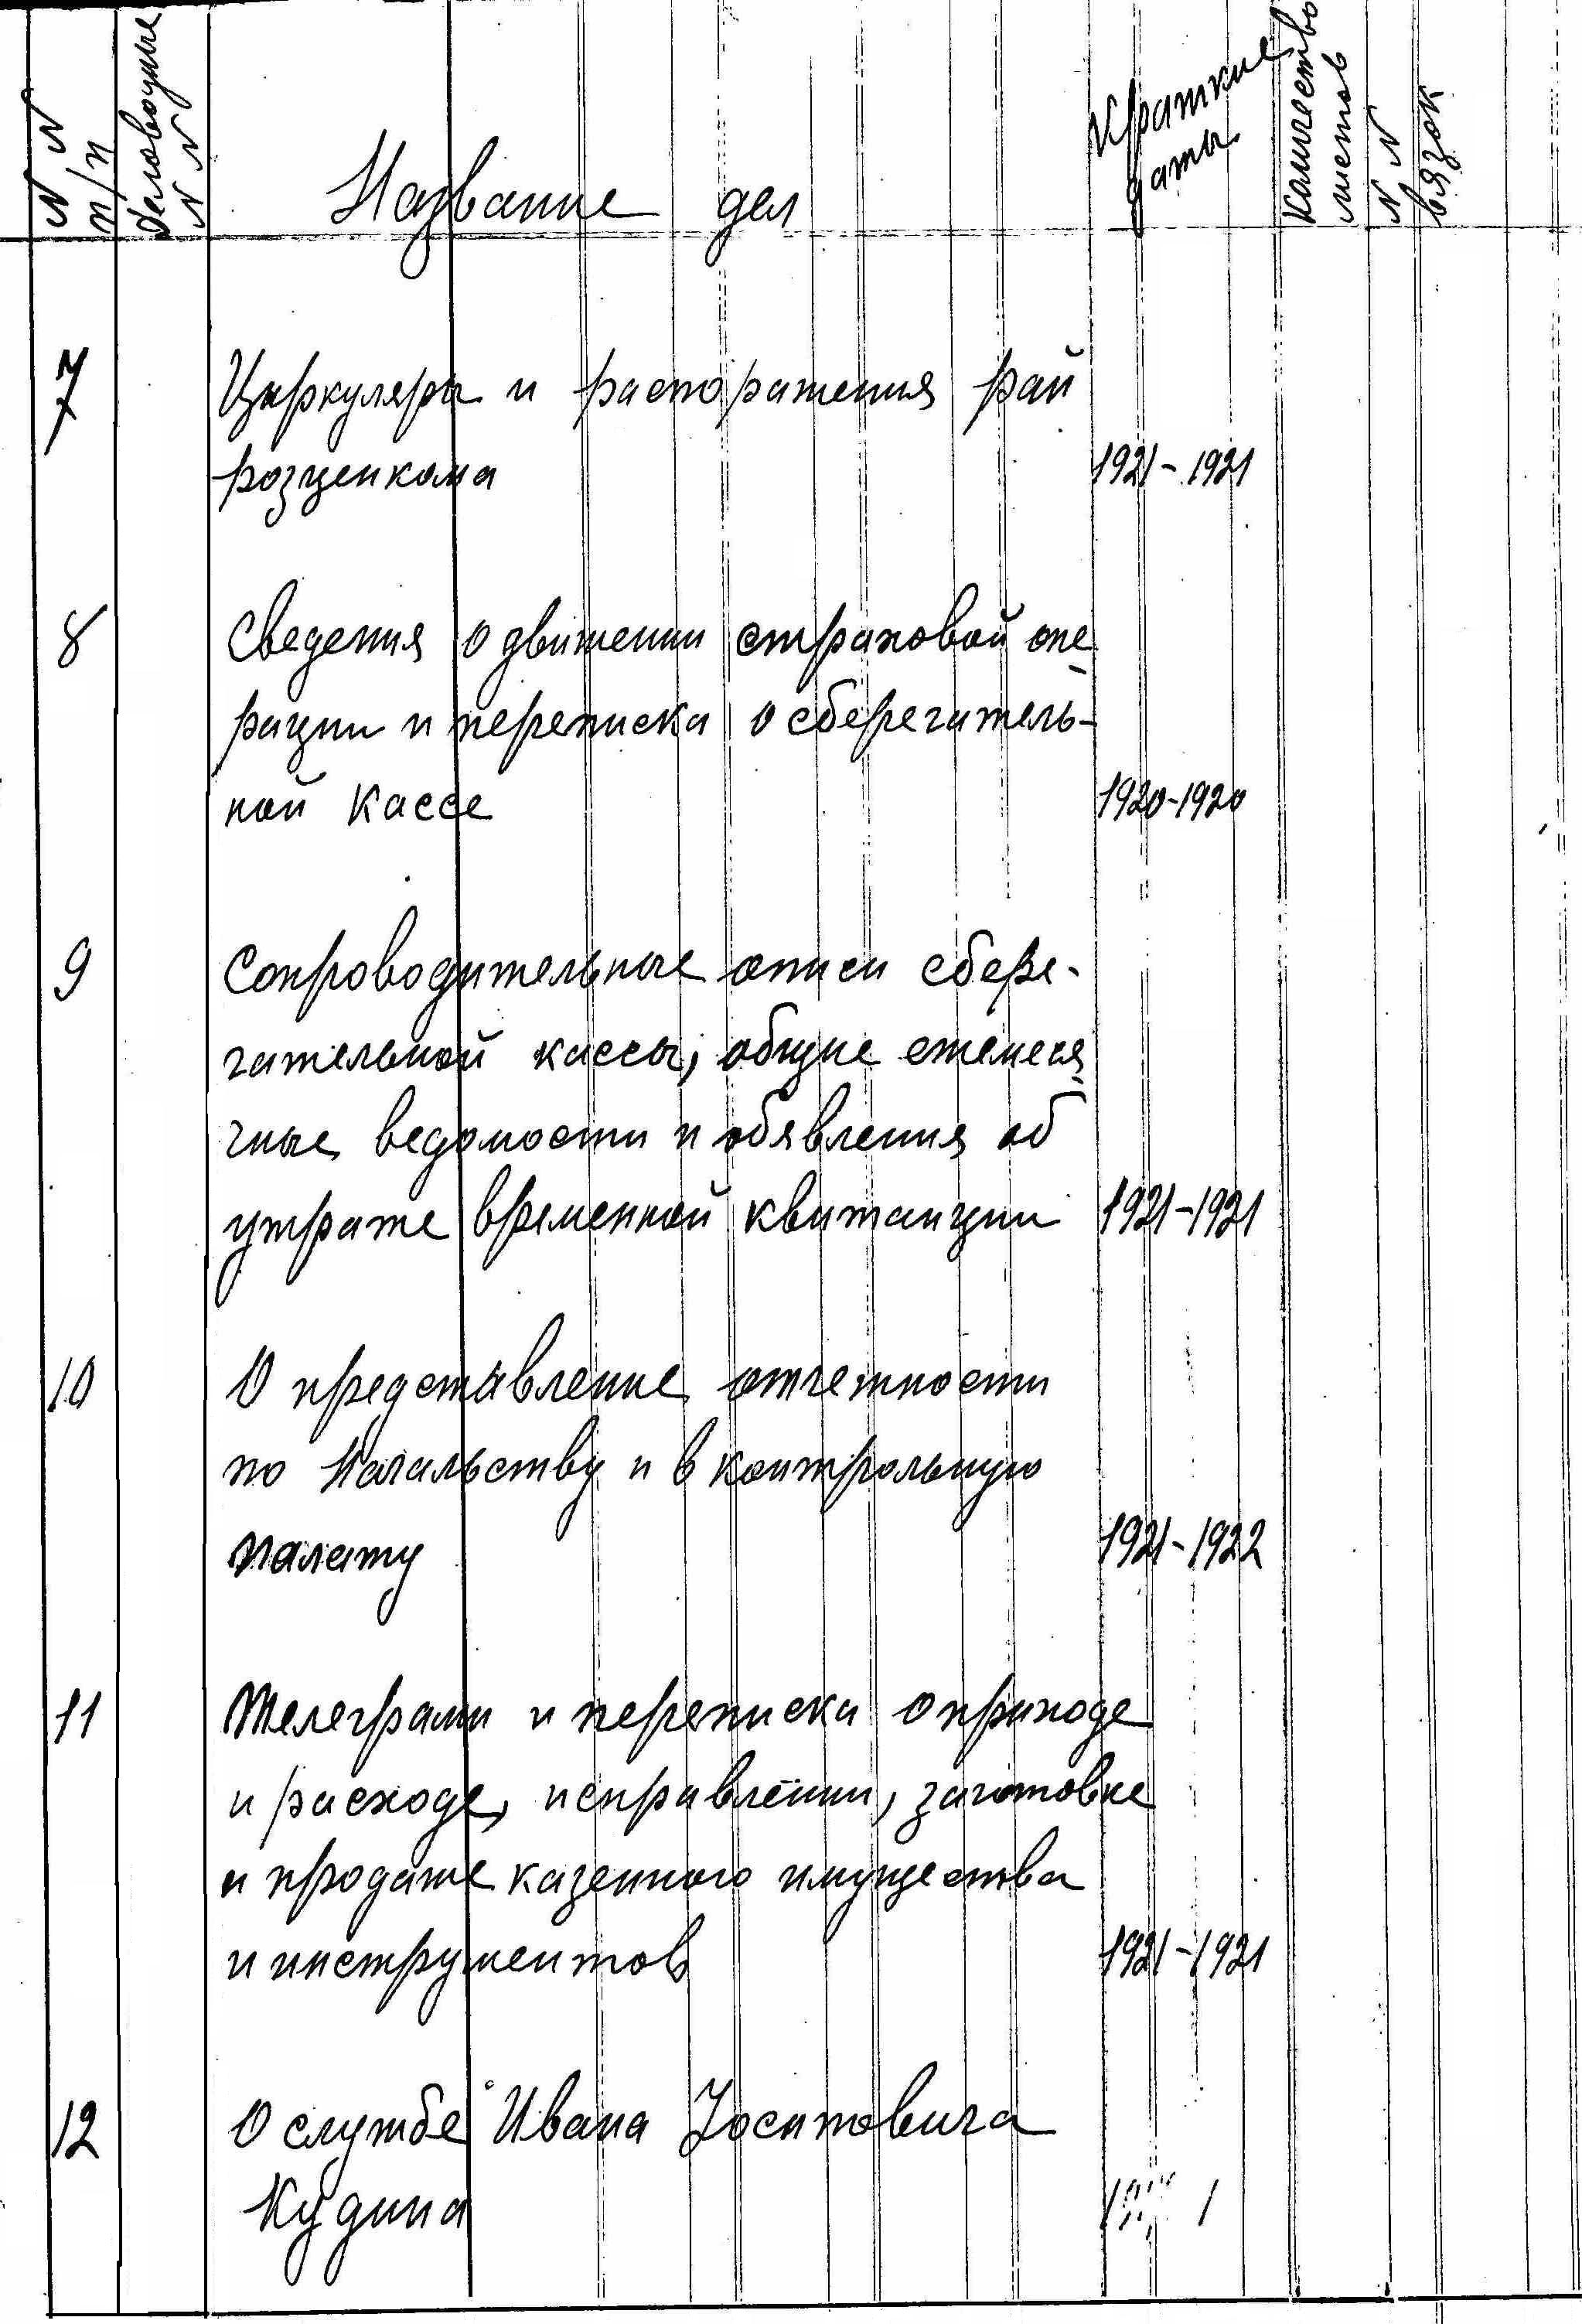 № №
п/п
Деловодные
№ №
Название дел
Краткие
даты
Количество
листов
№ №
вязок
7
Циркуляры и распоряжения рай
розценкома 1921-1921
8
Сведения о движении страховой опе
рации и переписка о сберегатель-
ной кассе 1920-1920
9
Сопроводительные описи сбере-
гательной кассы, общие ежемеся
чные ведомости и обявления об
утрате временной квитанции 1921-1921
10
О представление отчетности
по Начальству и в контрольную
палату 1921-1922
11
Телеграми и переписка о приходе
и расходе, исправлении, заготовке
и продаже казенного имущества
и инструментов 1921-1921
12
О службе Ивана Иосиповича
Кудина